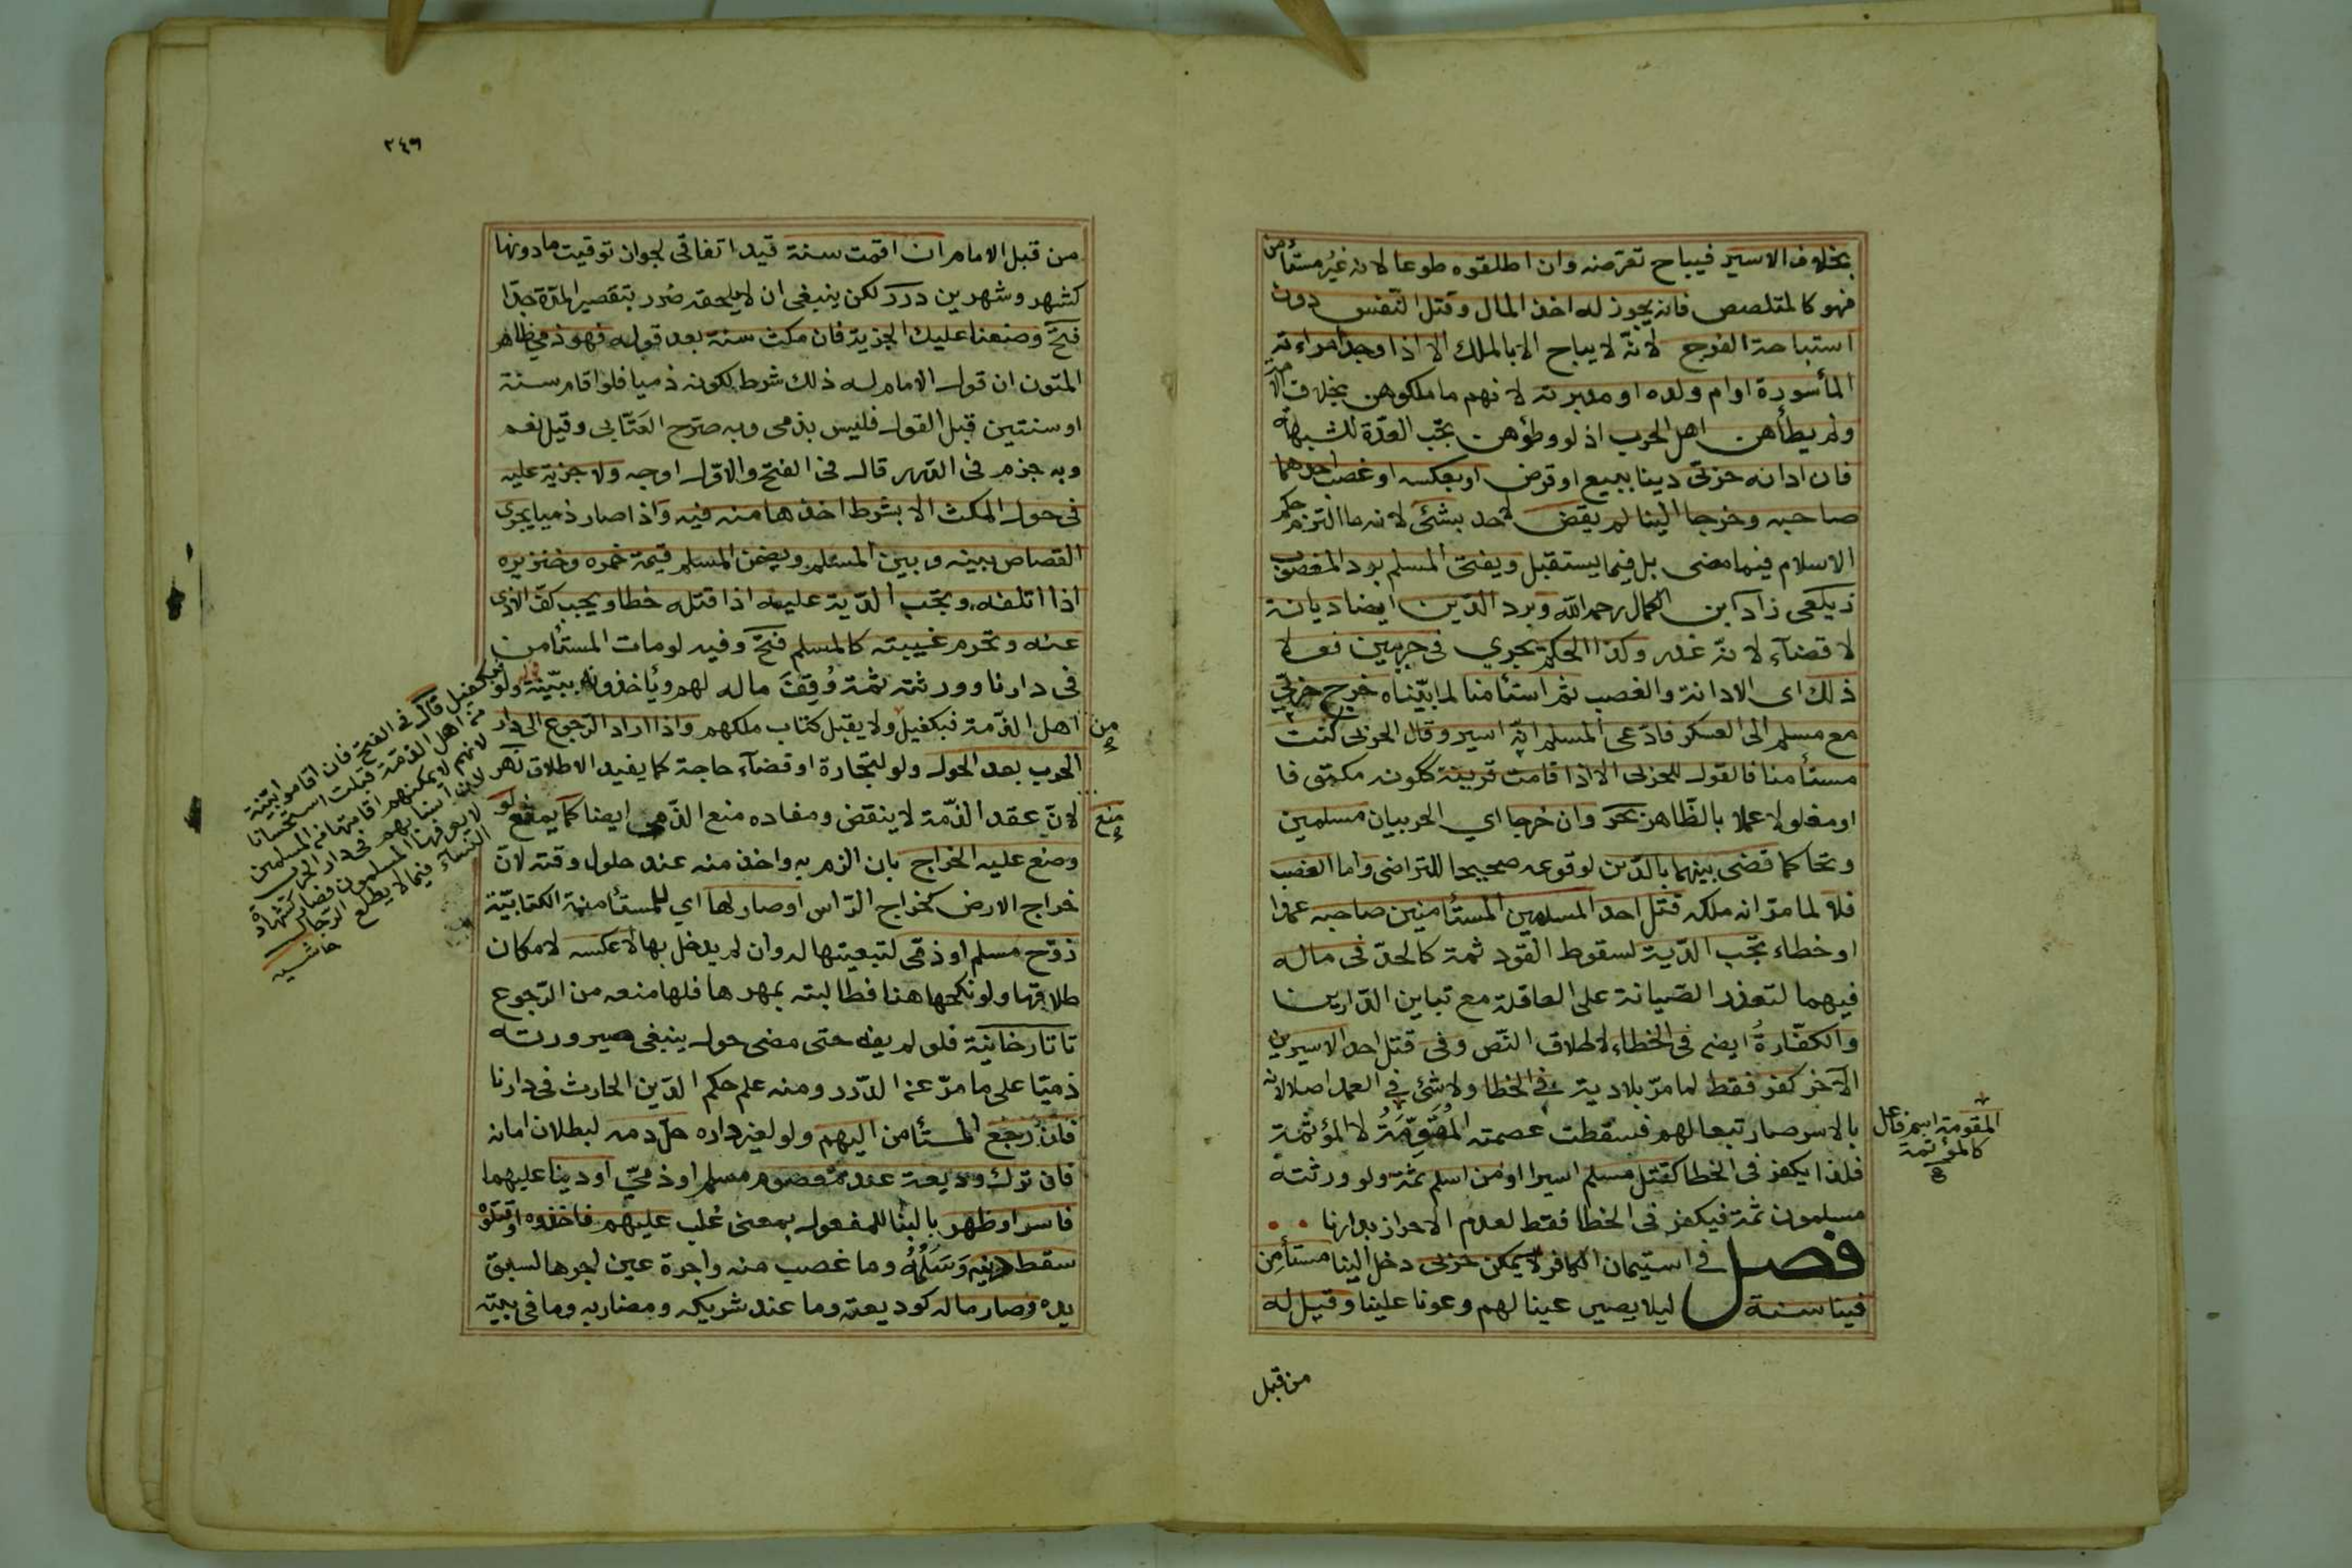 بخلاف الاسير فيباح تعرضه وان اطلقوه طوعا لانه غيُر مستأمن
فهو كالمتلصص فانه يجوز له اخذ المال وقتل النّفس دون
استباحة الفرج لانّه لا يباح الا بالملك الا اذا وجد امراءته
المأسورة او ام ولده او مدبرته لانهم ما ملكوهن بخلاف الامة
ولم يطأهن اهل الحرب اذ لو وطؤهن تجب العدّة للشبهة
فان ادانه حربّى دينا ببيع او قرض او بعكسه او غصب احدهما
صاحبه وخرجا الينا لم يقض لاحد بشئ لانه ما التزم حكم
الاسلام فيما مضى بل فيما يستقبل ويفتى المسلم برد المغصوب
زيلعى زاد ابن الكمال رحمه الله وبرد الدّين ايضا ديانة
لا قضآء لانّه غدر وكذا الحكم يجري فى حربيين فعلا
ذلك اى الادانة والغصب ثم استأمنا لما بيّناه خرج حربّي
مع مسلم الى العسكر فادّعى المسلم انّه اسير وقال الحربى كنت
مستأمنا فالقول للحربى الا اذا قامت قرينة ككونه مكتوفا
او مغلولا عملا بالظّاهر بحر وان خرجا اي الحربيان مسلمين
وتحاكما قضى بينهما بالدّين لوقوعه صحيحا للتراضى واما الغصب
فلا لما مرّ انه ملكه قتل احد المسلمين المستأمنين صاحبه عمدا
او خطاء تجب الدّية لسقوط القود ثمة كالحدّ فى ماله
فيهما لتعذر الصّيانة على العاقلة مع تباين الدّارين
والكفّارةُ ايضا فى الخطاء لاطلاق النّص وفى قتل احد الاسيرين
الآخر كفر فقط لما مرّ بلا دية فى الخطا ولا شئ فى العمد اصلا لانه
بالاسر صار تبعا لهم فسقطت عصمته المُقَوِّمَةُ لا المؤثمة
فلذا يكفر فى الخطا كقتل مسلم اسيرا او من اسلم ثمة ولو ورثته
مسلمون ثمة فيكفر فى الخطا فقط لعدم الاحراز بدارنا
فصل فى استيمان الكافر لا يمكن حربى دخل الينا مستأمِن
فينا سنة ليلا يصير عينا لهم وعونا علينا وقيل له
المقومة اسم فاعل
كالمؤثمة
من قبل
٢٤٦
من قبل الامام ان اقمت سنة قيد اتفاقى لجواز توقيت ما دونها
كشهر وشهرين درر لكن ينبغى ان لا يلحقه ضرر بتقصير المدّة جدّا
فتح وضعنا عليك الجزية فان مكث سنة بعد قوله فهو ذمي ظاهر
المتون ان قول الامام له ذلك شرط لكونه ذميا فلو اقام سنة
او سنتين قبل القول فليس بذمى وبه صرّح العَتّابى وقيل نعم
وبه جزم فى الدّرر قال فى الفتح والاوّل اوجه ولا جزية عليه
فى حول المكث الا بشرط اخذها منه فيه واذا صار ذميا يجرى
القصاص بينه وبين المسلم ويضمن المسلم قيمة خمره وخنزيره
اذا اتلفه وتجب الدّية عليه اذا قتله خطا ويجب كفّ الاذى
عنه وتحرم غيبته كالمسلم فتح وفيه لو مات المستأمن
فى دارنا وورثته ثمة وُقِفَ ماله لهم ويأخذونه ببيّنة ولو
من اهل الذّمة فبكفيل ولا يقبل كتاب ملكهم واذا اراد الرّجوع الى دار
الحرب بعد الحول ولو لتجارة او قضآء حاجة كما يفيد الاطلاق نهر
لانّ عقد الذّمة لا ينقض ومفاده منع الذّمى ايضا كما يمنع لو
وضع عليه الخراج بان الزم به واخذ منه عند حلول وقته لانّ
خراج الارض كخراج الرّاس او صار لها اي للمستأمنة الكتابيّة
زوّج مسلم او ذمّى لتبعيتها له وان لم يدخل بها لا عكسه لامكان
طلاقها ولو نكحها هنا فطالبته بمهرها فلها منعه من الرّجوع
تاتارخانيّة فلو لم يفه حتى مضى حول ينبغى صيرورته
ذميّا على ما مرّ عن الدّرر ومنه علم حكم الدّين الحادث فى دارنا
فان رجع المستأمن اليهم ولو لغير داره حلّ دمه لبطلان امانه
فان ترك وديعة عند معصوم مسلم او ذميّ او دينا عليهما
فاسر او ظهر بالبنا للمفعول بمعنى غلب عليهم فاخذوه او قتلوه
سقط دينه وَسَلَمُهُ وما غصب منه واجرة عين اجرها لسبق
يده وصار ماله كوديعته وما عند شريكه ومضاربه وما فى بيته
من
منع
قوله فبكفيل قال فى الفتح فان اقاموا بيّنة
من اهل الذمة قبلت استحسانا
لانهم لا يمكنهم اقامتها من المسلمين
لان انسابهم فى دار الحرب
لا يعرفها المسلمون فصار كشهادة
النساء فيما لا يطلع الرّجال
حاشيه